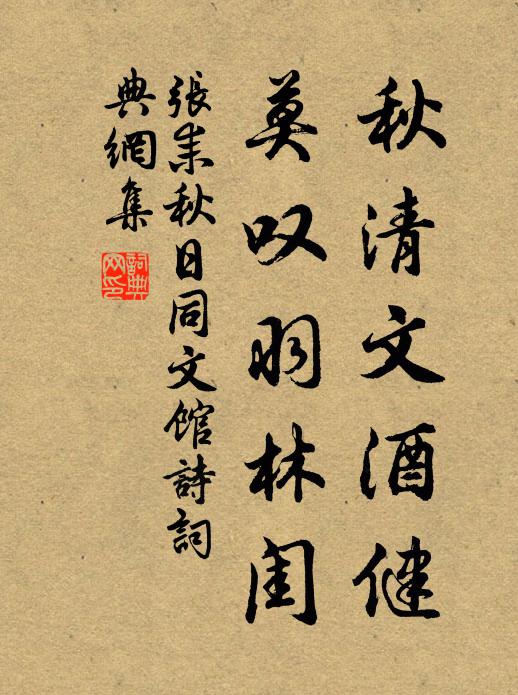 秋清文酒健
莫叹羽林闺
張耒秋日同文館詩詞
典網集
詞典
网印